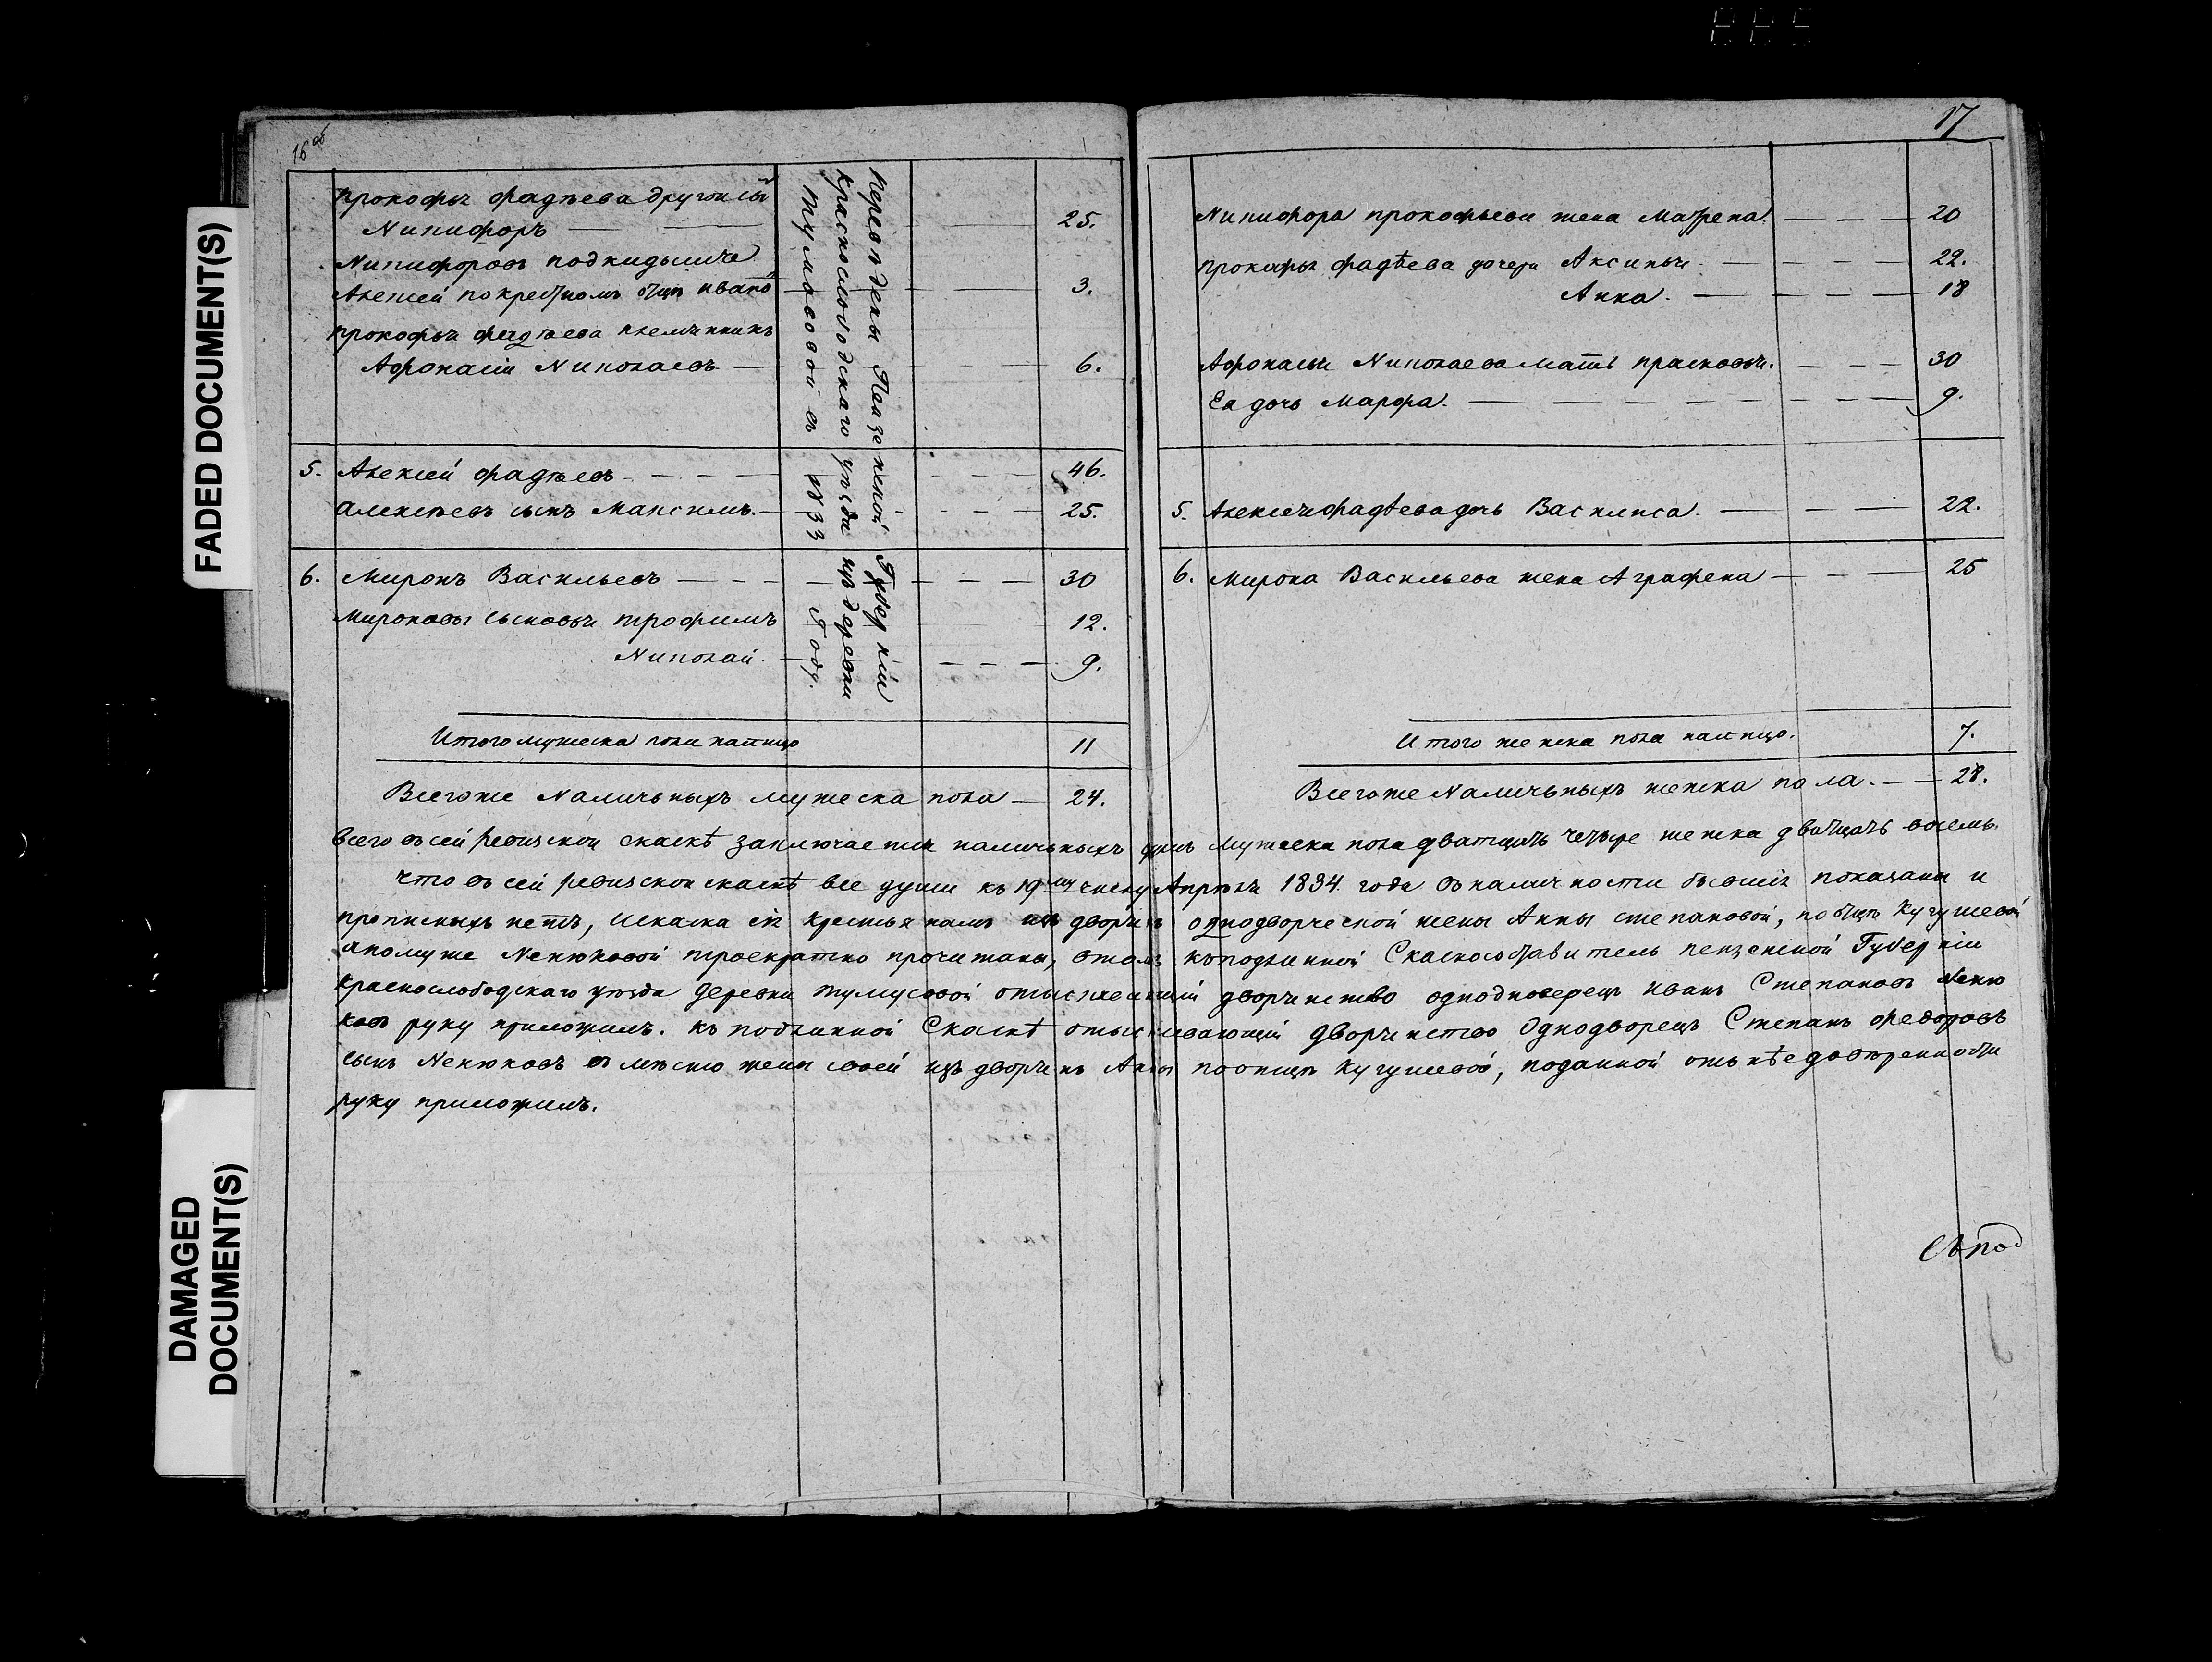 FADED DOCUMENT(S)
DAMAGED
DOCUMENT(S)
16 об
Прокофья Фадѣева другой сы͠н
Никифоръ 25.
Никифоровъ подкидышъ
Алексей по крестномъ отцѣ Ивано͠ 3.
Прокофья Фадѣева племянникъ
Афонасій Николаевъ 6.
переведены Пензенской Губерніи
Краснослободскаго уезда изъ деревни
Тумосовой въ 1833 Году.
5. Алексей Фадѣевъ 46.
Алексѣевъ сынъ Максимъ. 25.
6. Миронъ Васильевъ 30
Мироновы сыновья Трофимъ 12.
Николай. 9.
Итого мужеска пола налицо 11
Всего же Наличьныхъ мужеска пола 24.
17
Никифора Прокофьева жена Матрена. 20
Прокофья Фадѣева дочери Аксинья 22.
Анна. 18
Афонасья Николаева мать Прасковья. 30
Ея дочь Марфа. 9.
5. Алексея Фадѣева дочь Василиса. 22.
6. Мирона Васильева жена Аграфена 25
Итого женска пола налицо. 7.
Всего же Наличьныхъ женска пола. 28.
Всего въ сей ревизской скаскѣ заключается наличьныхъ душъ мужеска пола дватцать четыре женска дватцать восемь.
Что въ сей ревизской скаскѣ все души къ 19му числу Апрѣля 1834. года въ наличности бывшія показаны и
прописныхъ нетъ, и скаска сія крестьянамъ изъ дворянъ однодворческой жены Анны Степановой, по отцѣ Кугушевой
а по муже Ненюковой троекратно прочитана, въ томъ къ подлинной Скаскосоставитель Пензенской Губерніи
Краснослободскаго уезда деревни Тумусовой отыскеющій дворянство однодворецъ Иванъ Степановъ Неню
ковъ руку приложилъ. Къ подлинной Скаскѣ отыскивающій дворянство Однодворецъ Степанъ Федоровъ
сынъ Ненюковъ въ место жены своей изъ дворянъ Анны по отцѣ Кугушевой, поданной отъ нѣе доверенности
руку приложилъ.